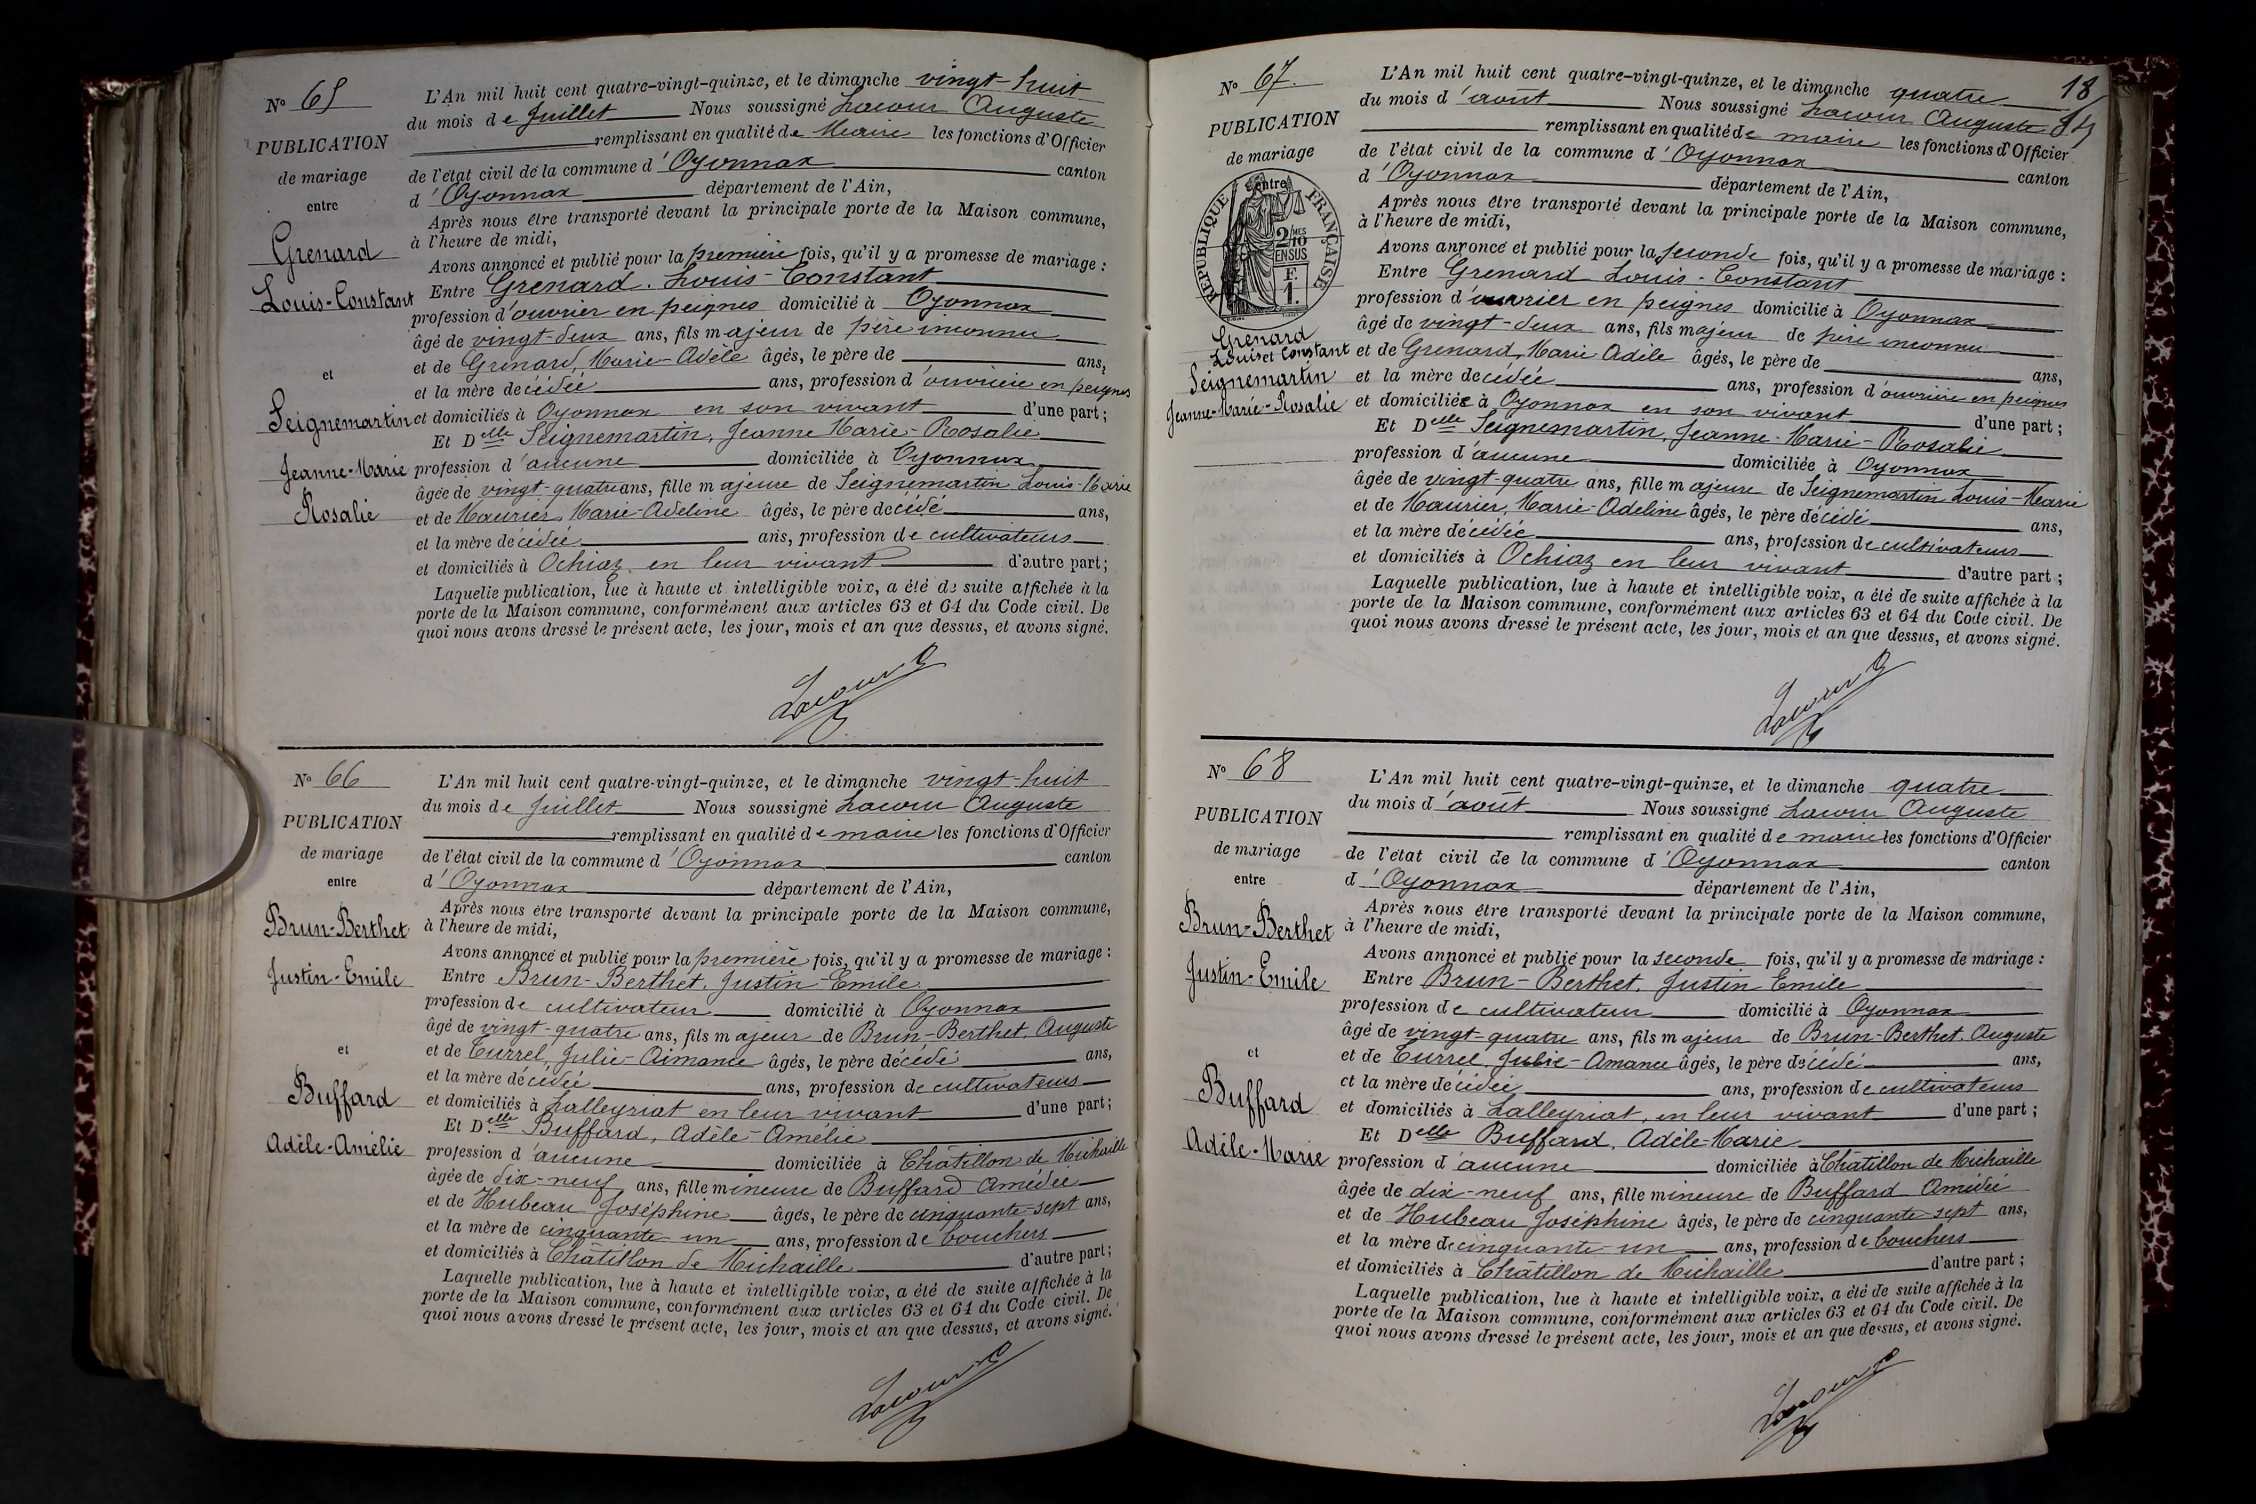 N° 65
PUBLICATION
de mariage
entre
Grenard
Louis-Constant
et
Seignemartin
Jeanne-Marie
Rosalie
L'An mil huit cent quatre-vingt-quinze, et le dimanche vingt-huit
du mois de Juillet Nous soussigné Lacour Auguste
remplissant en qualité de Maire les fonctions d'Officier
de l'état civil de la commune d'Oyonnax canton
d'Oyonnax département de l'Ain,
Après nous être transporté devant la principale porte de la Maison commune,
à l'heure de midi,
Avons annoncé et publié pour la première fois, qu'il y a promesse de mariage :
Entre Grenard. Louis-Constant
profession d'ouvrier en peignes domicilié à Oyonnax
âgé de vingt-deux ans, fils majeur de père inconnu
et de Grenard, Marie-Adèle âgés, le père de ans,
et la mère décédée ans, profession d'ouvrière en peignes
et domiciliés à Oyonnax en son vivant d'une part ;
Et Delle Seignemartin, Jeanne Marie-Rosalie
profession d'aucune domiciliée à Oyonnax
âgée de vingt-quatre ans, fille majeure de Seignemartin Louis-Marie
et de Maurier, Marie-Adeline âgés, le père décédé ans,
et la mère décédée ans, profession de cultivateurs
et domiciliés à Ochiaz en leur vivant d'autre part ;
Laquelle publication, lue à haute et intelligible voix, a été de suite affichée à la
porte de la Maison commune, conformément aux articles 63 et 64 du Code civil. De
quoi nous avons dressé le présent acte, les jour, mois et an que dessus, et avons signé.
Lacour
N° 66
PUBLICATION
de mariage
entre
Brun-Berthet
Justin-Emile
et
Buffard
Adèle-Amélie
L'An mil huit cent quatre-vingt-quinze, et le dimanche vingt-huit
du mois de Juillet Nous soussigné Lacour Auguste
remplissant en qualité de maire les fonctions d'Officier
de l'état civil de la commune d'Oyonnax canton
d'Oyonnax département de l'Ain,
Après nous être transporté devant la principale porte de la Maison commune,
à l'heure de midi,
Avons annoncé et publié pour la première fois, qu'il y a promesse de mariage :
Entre Brun-Berthet, Justin-Emile
profession de cultivateur domicilié à Oyonnax
âgé de vingt-quatre ans, fils majeur de Brun-Berthet, Auguste
et de Turrel, Julie-Aimance âgés, le père décédé ans,
et la mère décédée ans, profession de cultivateurs
et domiciliés à Lalleyriat en leur vivant d'une part ;
Et Delle Buffard, Adèle-Amélie
profession d'aucune domiciliée à Châtillon de Michaille
âgée de dix-neuf ans, fille mineure de Buffard Amédée
et de Hubeau Joséphine âgés, le père de cinquante-sept ans,
et la mère de cinquante-un ans, profession de bouchers
et domiciliés à Châtillon de Michaille d'autre part ;
Laquelle publication, lue à haute et intelligible voix, a été de suite affichée à la
porte de la Maison commune, conformément aux articles 63 et 64 du Code civil. De
quoi nous avons dressé le présent acte, les jour, mois et an que dessus, et avons signé.
Lacour
18
N° 67.
PUBLICATION
de mariage
entre
RÉPUBLIQUE FRANÇAISE
2/10
MES
EN SUS
F.
1.
Grenard
Louis et Constant
Seignemartin
Jeanne-Marie-Rosalie
L'An mil huit cent quatre-vingt-quinze, et le dimanche quatre
du mois d'août Nous soussigné Lacour Auguste
remplissant en qualité de maire les fonctions d'Officier
de l'état civil de la commune d'Oyonnax canton
d'Oyonnax département de l'Ain,
Après nous être transporté devant la principale porte de la Maison commune,
à l'heure de midi,
Avons annoncé et publié pour la seconde fois, qu'il y a promesse de mariage :
Entre Grenard Louis-Constant
profession d'ouvrier en peignes domicilié à Oyonnax
âgé de vingt-deux ans, fils majeur de père inconnu
et de Grenard, Marie Adèle âgés, le père de ans,
et la mère décédée ans, profession d'ouvrière en peignes
et domiciliée à Oyonnax en son vivant d'une part ;
Et Delle Seignemartin, Jeanne-Marie-Rosalie
profession d'aucune domiciliée à Oyonnax
âgée de vingt-quatre ans, fille majeure de Seignemartin Louis-Marie
et de Maurier, Marie-Adeline âgés, le père décédé ans,
et la mère décédée ans, profession de cultivateurs
et domiciliés à Ochiaz en leur vivant d'autre part ;
Laquelle publication, lue à haute et intelligible voix, a été de suite affichée à la
porte de la Maison commune, conformément aux articles 63 et 64 du Code civil. De
quoi nous avons dressé le présent acte, les jour, mois et an que dessus, et avons signé.
Lacour
N° 68
PUBLICATION
de mariage
entre
Brun-Berthet
Justin-Emile
et
Buffard
Adèle-Marie
L'An mil huit cent quatre-vingt-quinze, et le dimanche quatre
du mois d'août Nous soussigné Lacour Auguste
remplissant en qualité de maire les fonctions d'Officier
de l'état civil de la commune d'Oyonnax canton
d'Oyonnax département de l'Ain,
Après nous être transporté devant la principale porte de la Maison commune,
à l'heure de midi,
Avons annoncé et publié pour la seconde fois, qu'il y a promesse de mariage :
Entre Brun-Berthet, Justin Emile
profession de cultivateur domicilié à Oyonnax
âgé de vingt-quatre ans, fils majeur de Brun-Berthet, Auguste
et de Turrel, Julie-Amance âgés, le père décédé ans,
et la mère décédée ans, profession de cultivateurs
et domiciliés à Lalleyriat, en leur vivant d'une part ;
Et Delle Buffard, Adèle-Marie
profession d'aucune domiciliée à Châtillon de Michaille
âgée de dix-neuf ans, fille mineure de Buffard Amédée
et de Hubeau Joséphine âgés, le père de cinquante-sept ans,
et la mère de cinquante-un ans, profession de bouchers
et domiciliés à Châtillon de Michaille d'autre part ;
Laquelle publication, lue à haute et intelligible voix, a été de suite affichée à la
porte de la Maison commune, conformément aux articles 63 et 64 du Code civil. De
quoi nous avons dressé le présent acte, les jour, mois et an que dessus, et avons signé.
Lacour